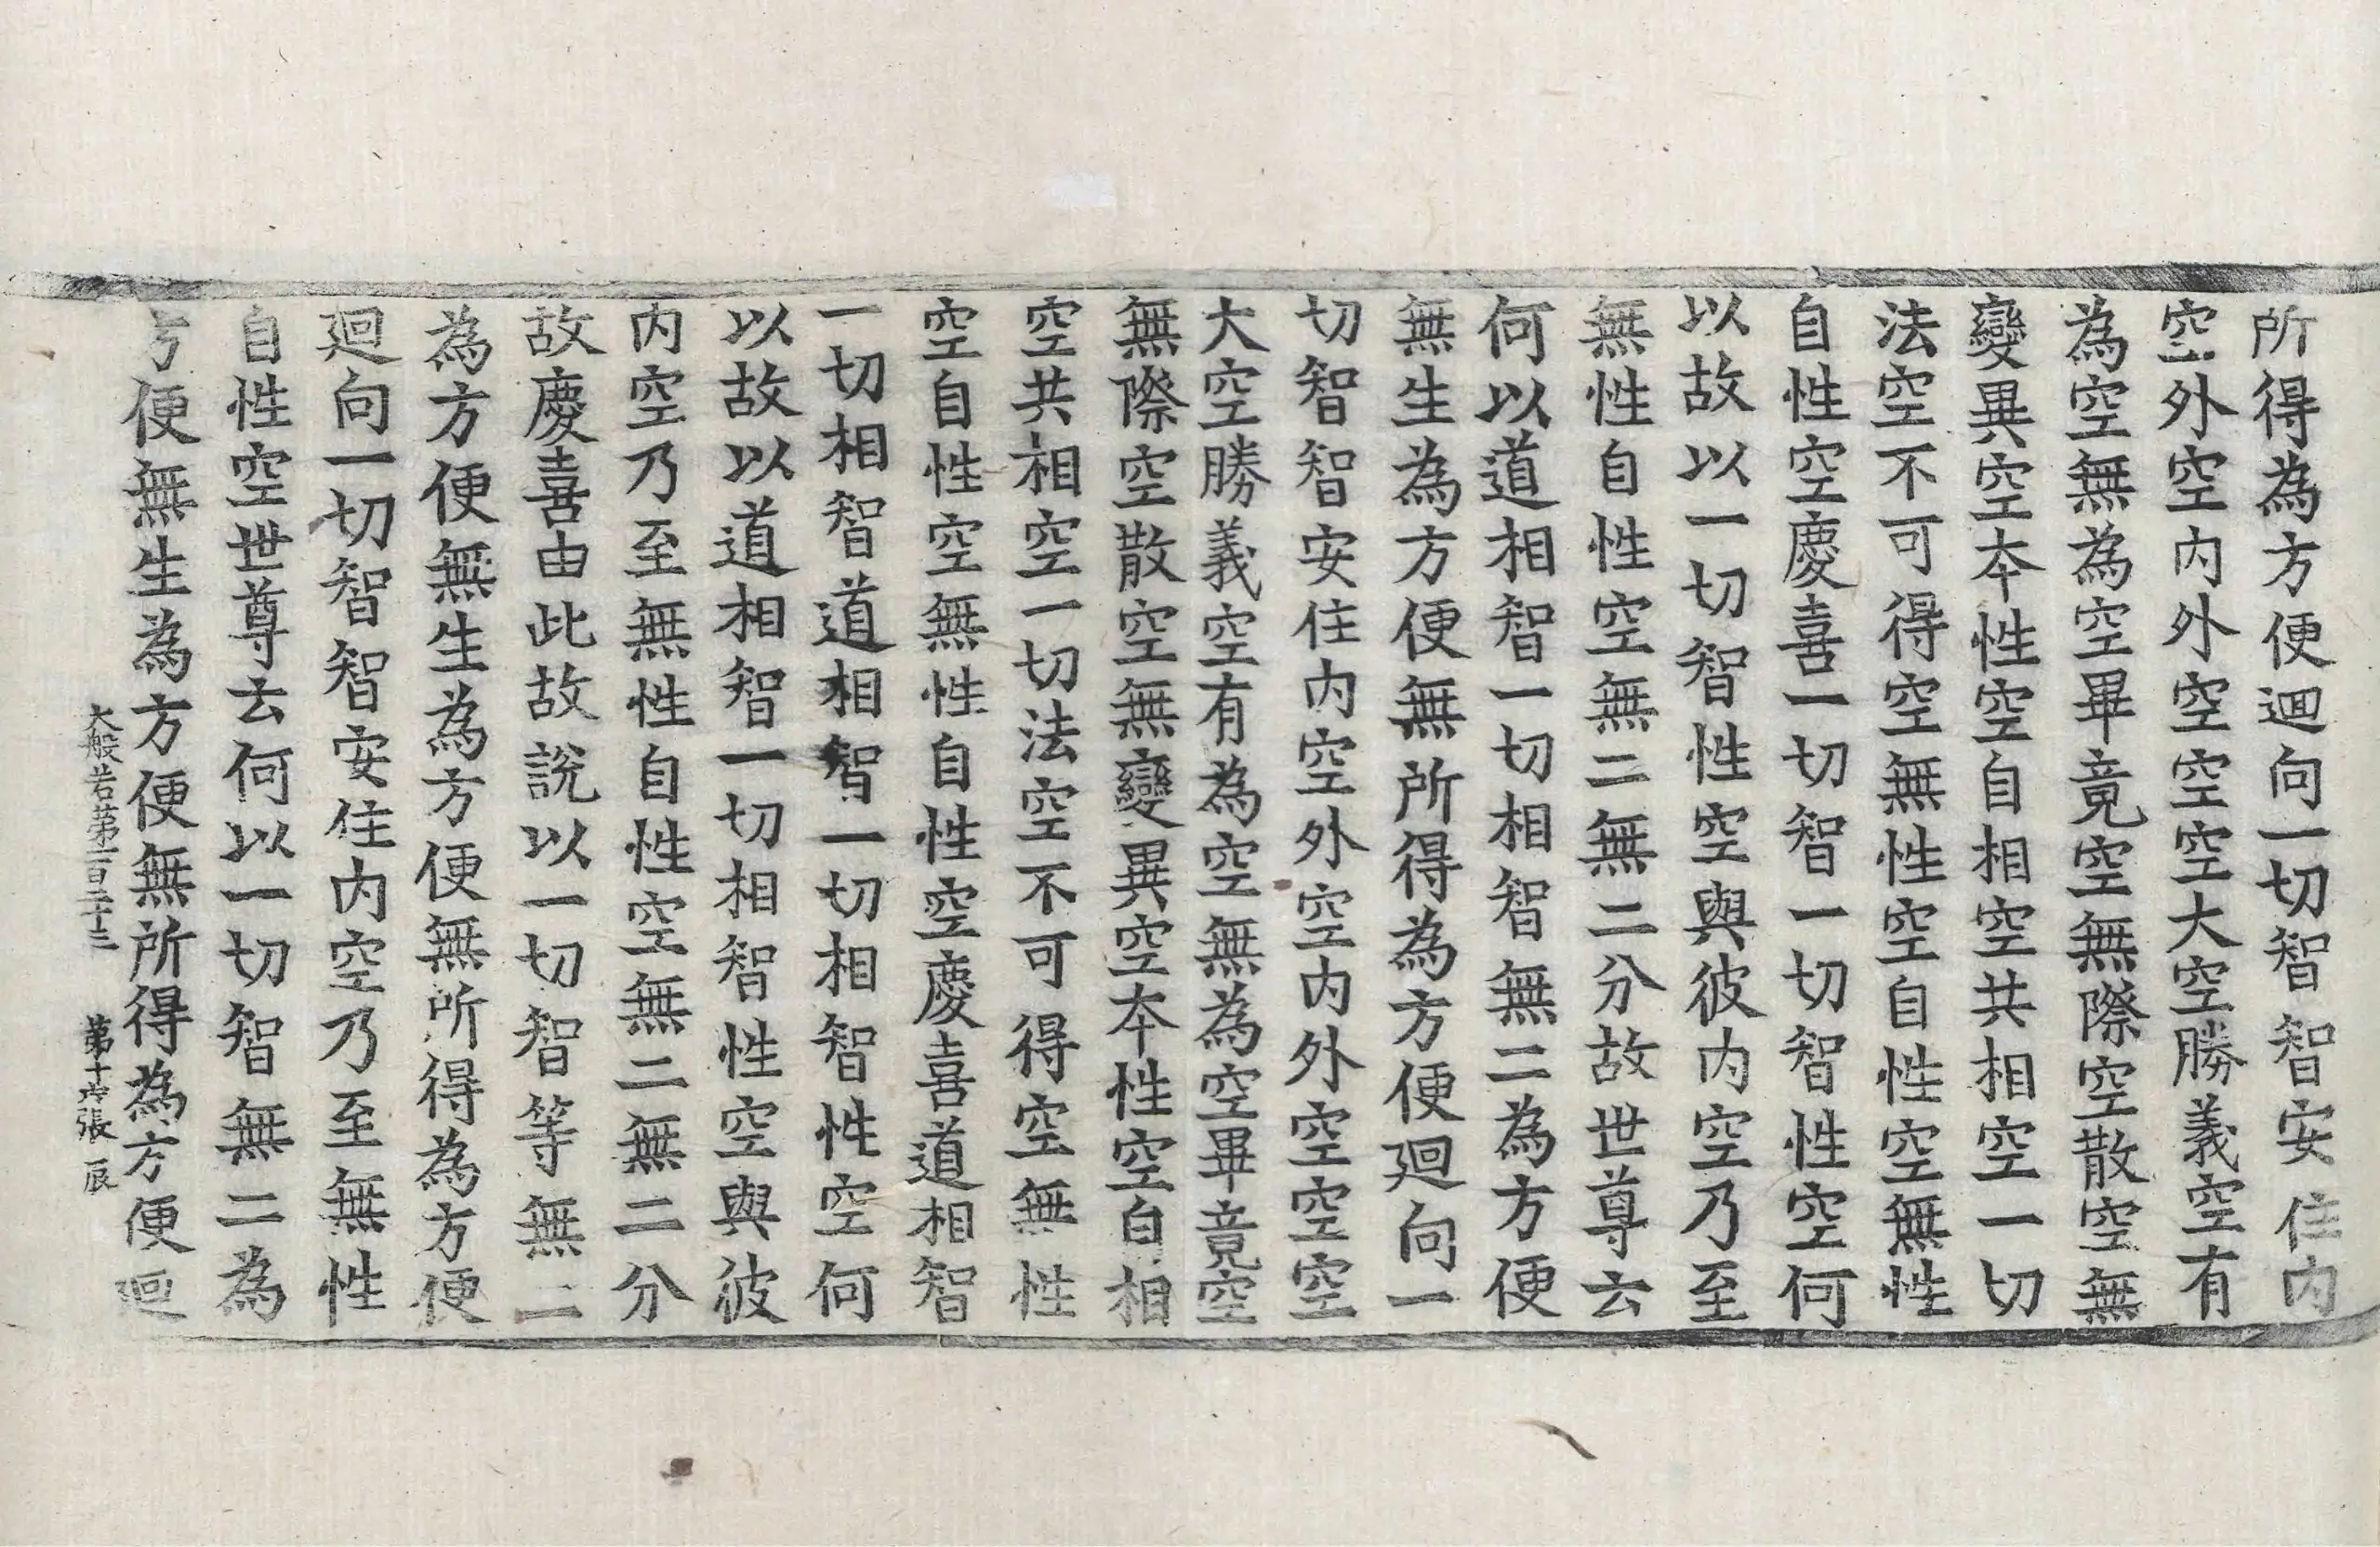 所得為方便迴向一切智智安住內
空外空內外空空空大空勝義空有
為空無為空畢竟空無際空散空無
變異空本性空自相空共相空一切
法空不可得空無性空自性空無性
自性空慶喜一切智一切智性空何
以故以一切智性空與彼內空乃至
無性自性空無二無二分故世尊云
何以道相智一切相智無二為方便
無生為方便無所得為方便迴向一
切智智安住內空外空內外空空空
大空勝義空有為空無為空畢竟空
無際空散空無變異空本性空自相
空共相空一切法空不可得空無性
空自性空無性自性空慶喜道相智
一切相智道相智一切相智性空何
以故以道相智一切相智性空與彼
內空乃至無性自性空無二無二分
故慶喜由此故說以一切智等無二
為方便無生為方便無所得為方便
迴向一切智智安住內空乃至無性
自性空世尊云何以一切智無二為
方便無生為方便無所得為方便迴
大般若第一百二十三 第十六張 辰